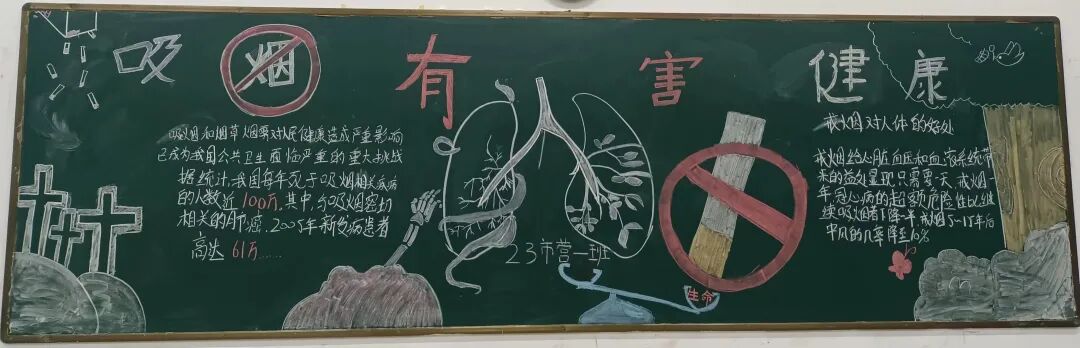 吸烟有害健康
吸烟和烟草烟雾对人民健康造成严重影响
已成为我国公共卫生面临严重的重大挑战
据统计，我国每年死于吸烟相关疾病
的人数近100万，其中，与吸烟密切
相关的肺癌，2005年新发病患者
高达61万……
23市营一班
生命
戒烟对人体的好处
戒烟给心脏血压和血液系统带
来的益处显现只需要一天，戒烟一
年，冠心病的超额危险性比继
续吸烟者下降一半，戒烟5~15年后
中风的几率降至10%